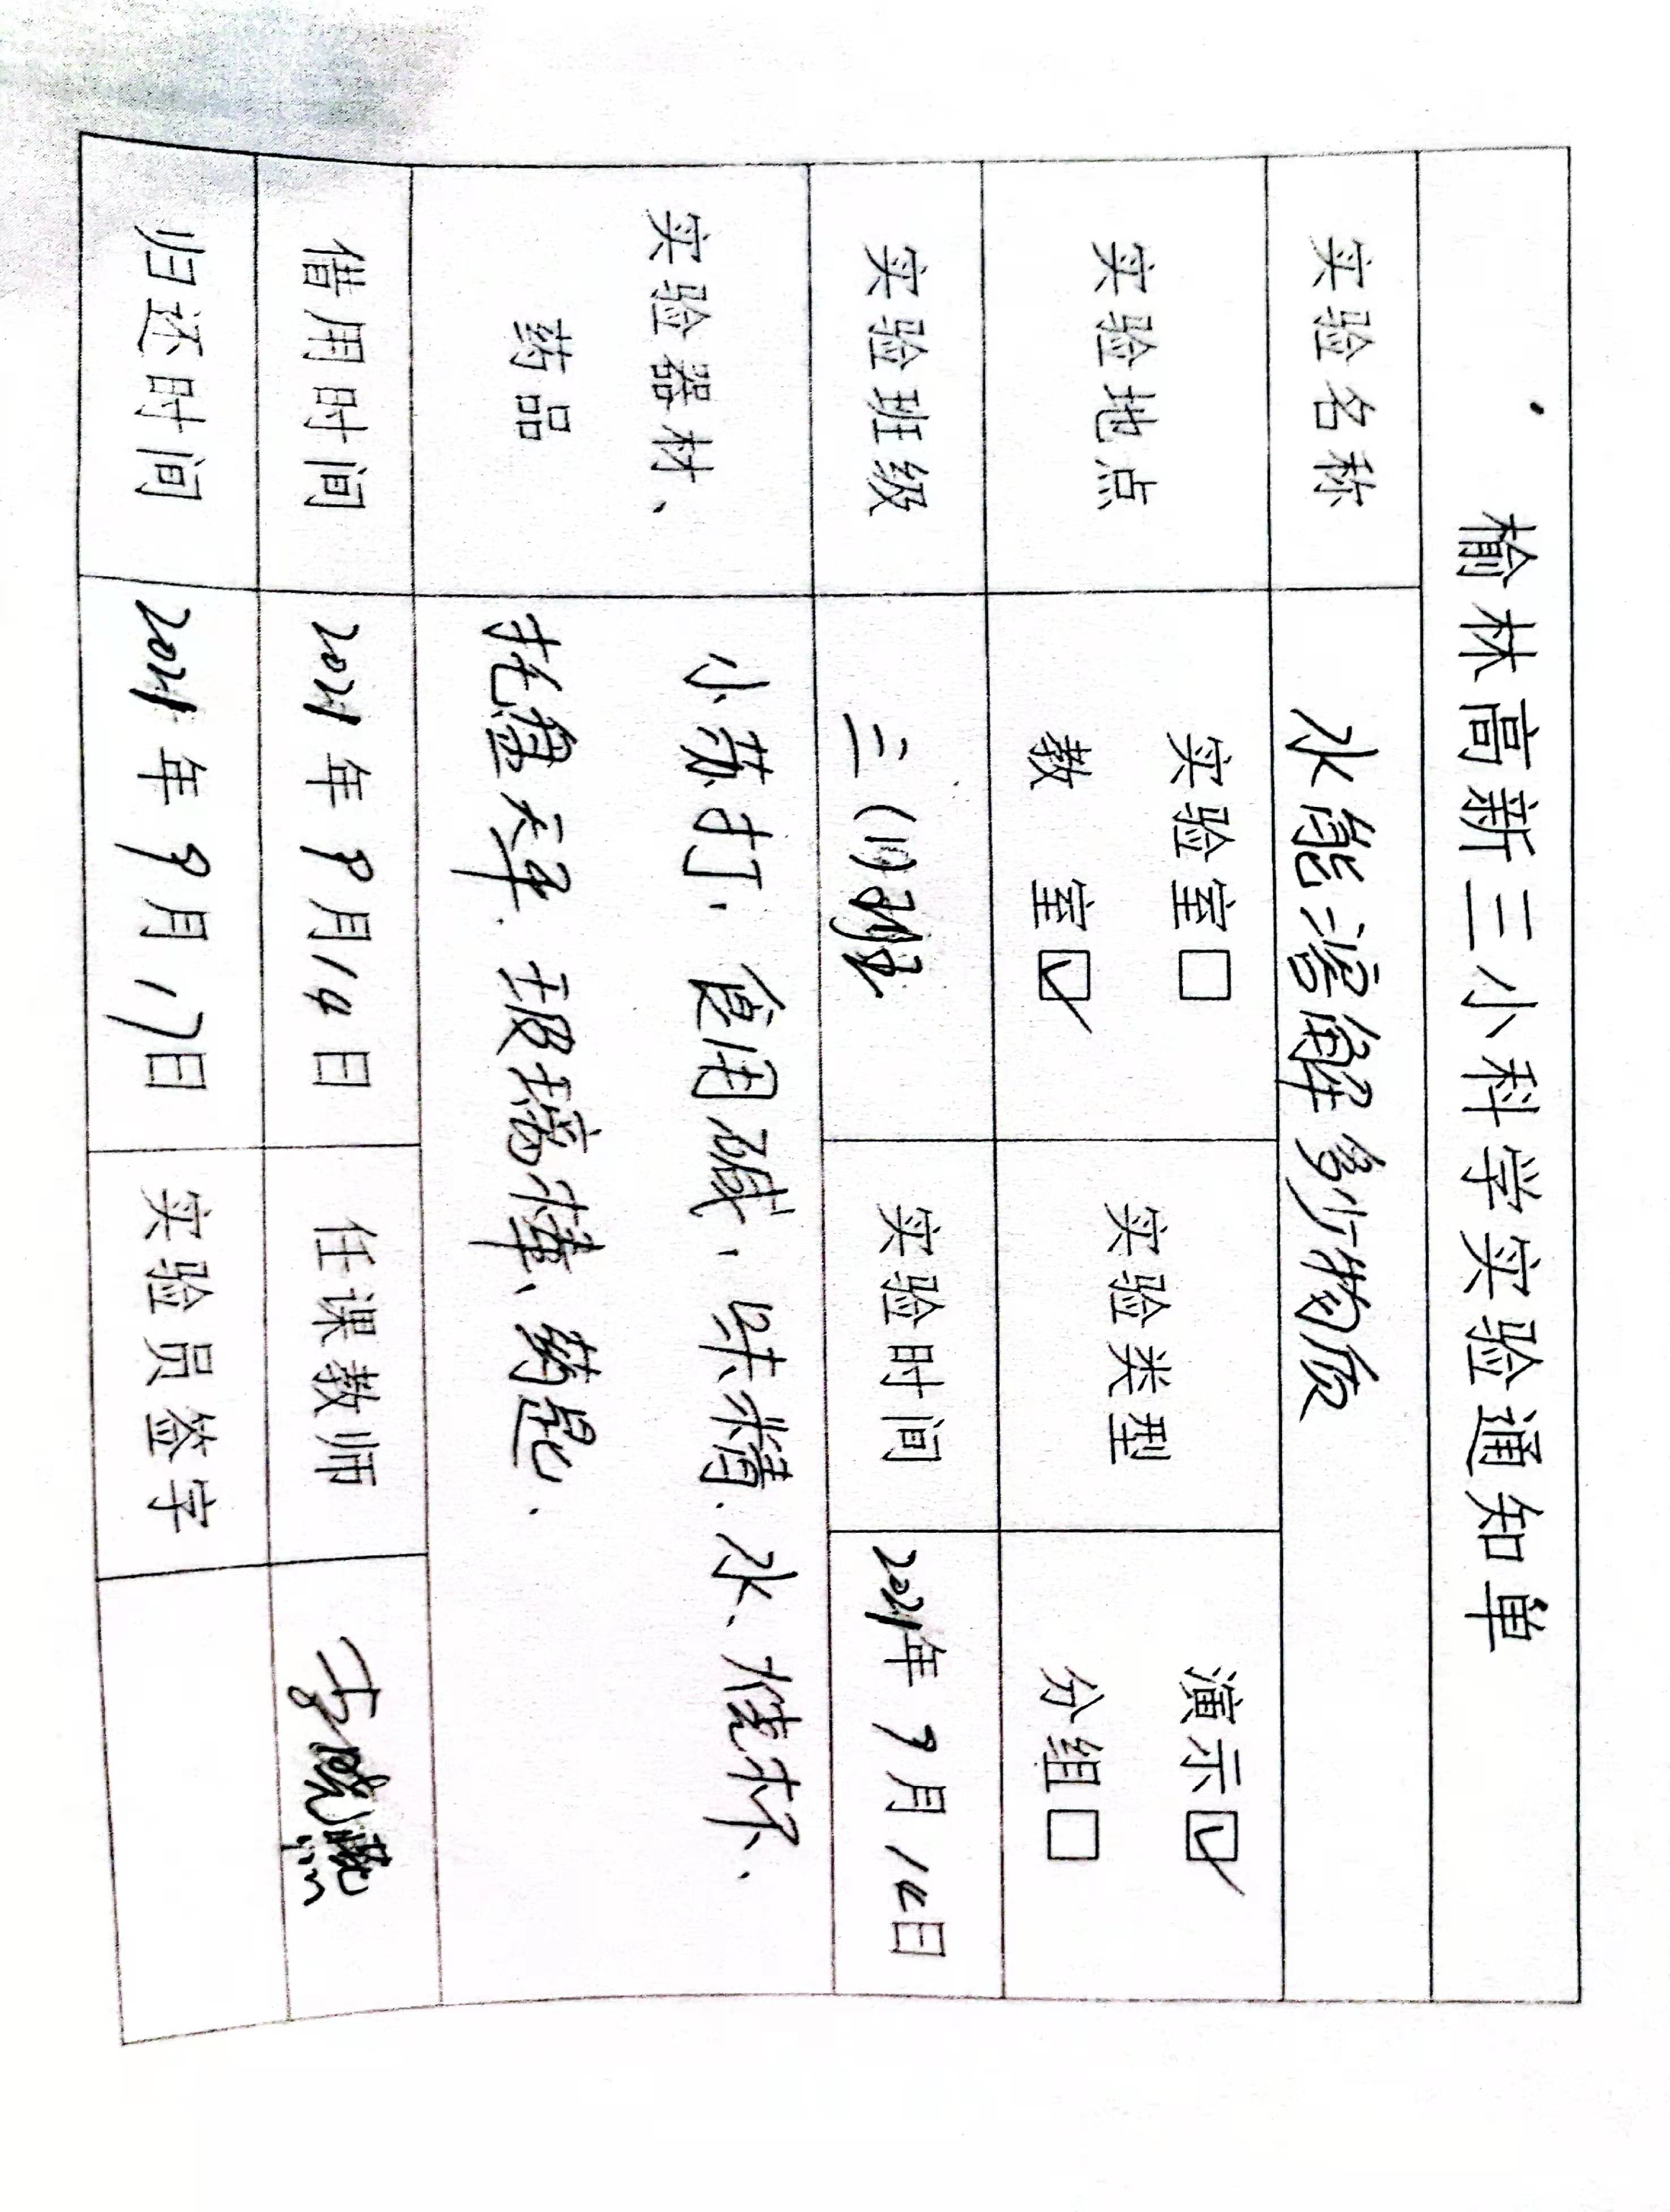 榆林高新三小科学实验通知单
实验名称 水能溶解多少物质
实验地点 实验室□ 教 室☑ 实验类型 演示☑ 分组□
实验班级 三(11)班 实验时间 2021年 9月 14日
实验器材、药品
小苏打、食用碱、味精、水、烧杯、
托盘天平、玻璃棒、药匙.
借用时间 2021年9月14日 任课教师
归还时间 2021年9月17日 实验员签字